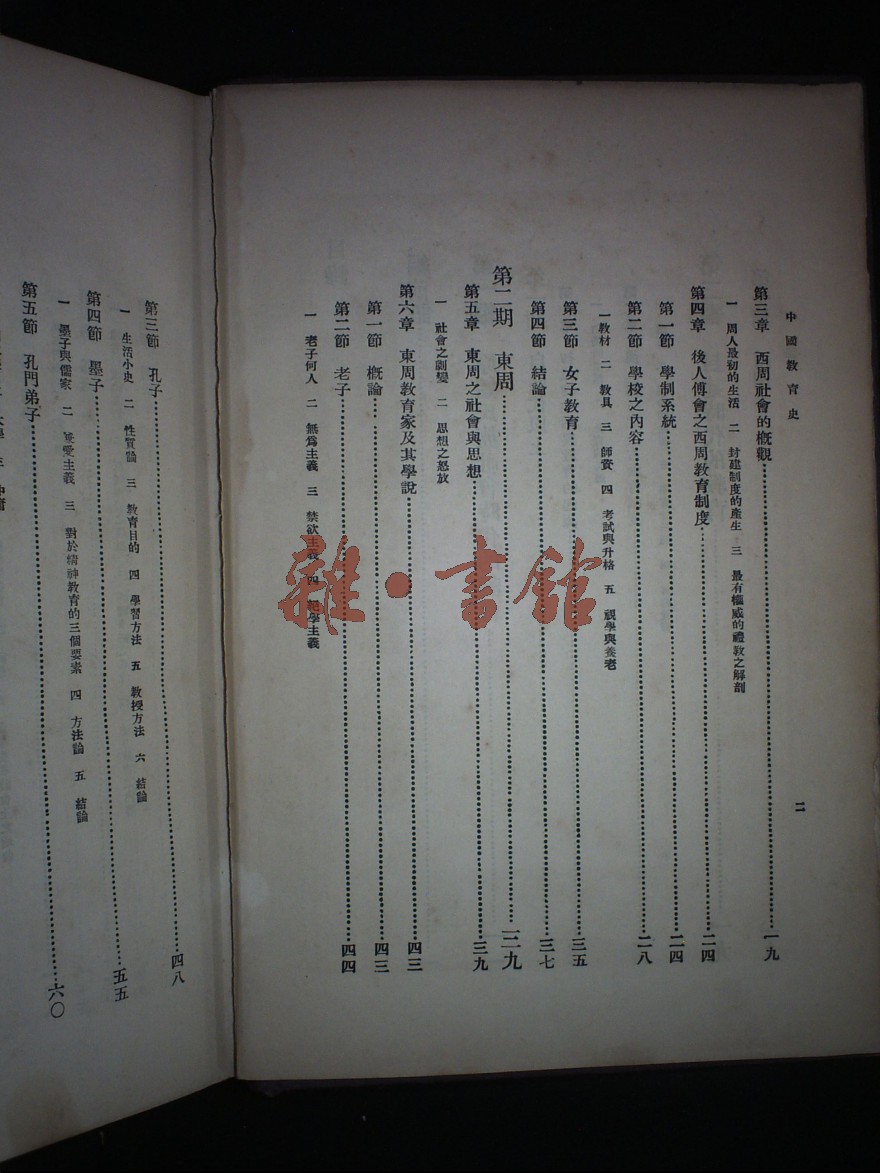 中國教育史
二
第三章 西周社會的概觀……一九
一 周人最初的生活 二 封建制度的產生 三 最有權威的禮教之解剖
第四章 後人傅會之西周教育制度……二四
第一節 學制系統……二四
第二節 學校之內容……二八
一教材 二 教具 三 師資 四 考試與升格 五 視學與養老
第三節 女子教育……三五
第四節 結論……三七
第二期 東周……三九
第五章 東周之社會與思想……三九
一 社會之劇變 二 思想之怒放
第六章 東周教育家及其學說……四三
第一節 概論……四三
第二節 老子……四四
一 老子何人 二 無爲主義 三 禁欲主義 四 絕學主義
第三節 孔子……四八
一 生活小史 二 性質論 三 教育目的 四 學習方法 五 教授方法 六 結論
第四節 墨子……五五
一 墨子與儒家 二 兼愛主義 三 對於精神教育的三個要素 四 方法論 五 結論
第五節 孔門弟子……六〇
雜·書館